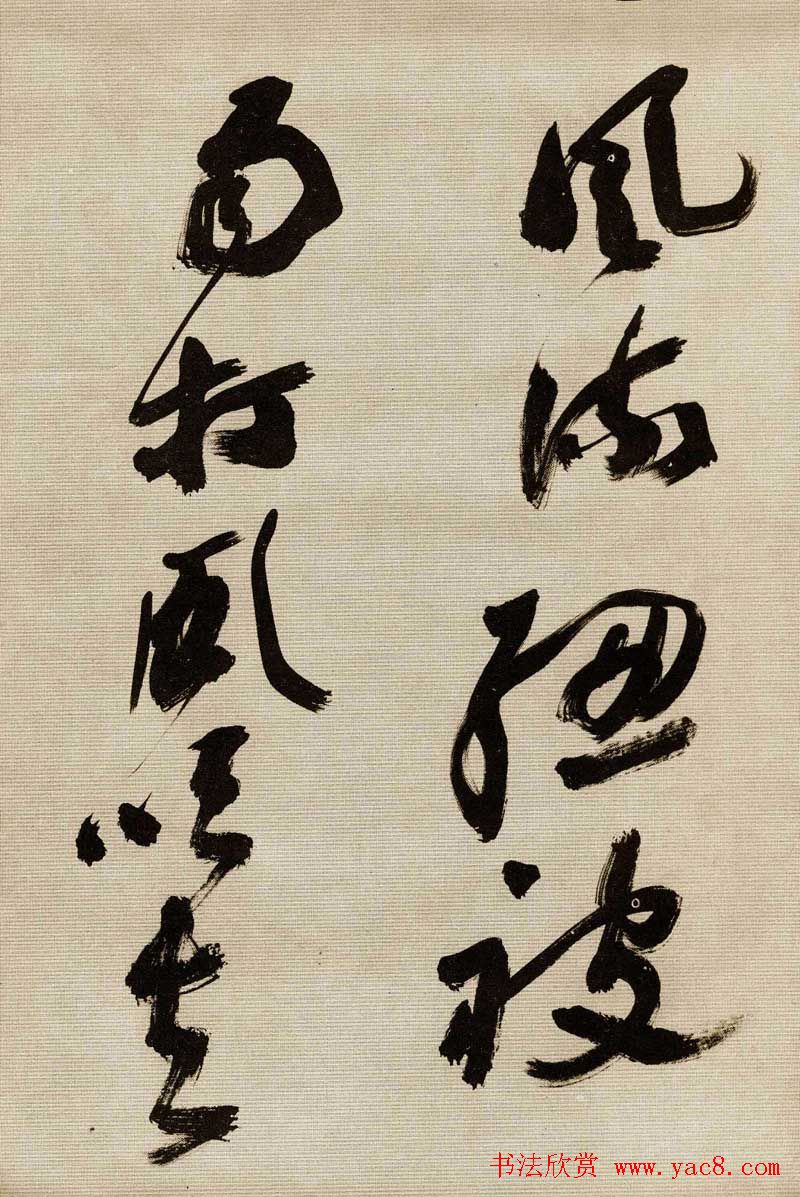 风流总被
雨打风吹去
书法欣赏 www.yac8.com